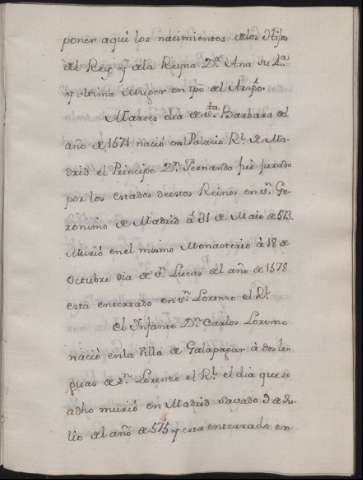 poner aquí los nacimientos de los Hijos
del Rey, y de la Reyna D.ª Ana su
y ultima Muger en tpo del
Martes dia de S.ta Barbara del
año de 1571 nació en el Palacio R.l de Ma-
drid el Principe D.n Fernando fue jurado
por los estados de estos Reinos en S.n Ge-
ronimo de Madrid á 31 de Maio de 573
Murió en el mismo Monasterio á 18 de
Octubre dia de S.n Lucas del año de 1578
está enterrado en S.n Lorenzo el R.l
El Infante D.n Carlos Lorenzo
nació en la Villa de Galapagar á dos le-
guas de S.n Lorenzo el R.l el dia que se
a dho murió en Madrid savado 9 de Ju-
lio del año de 575 y esta enterrado en